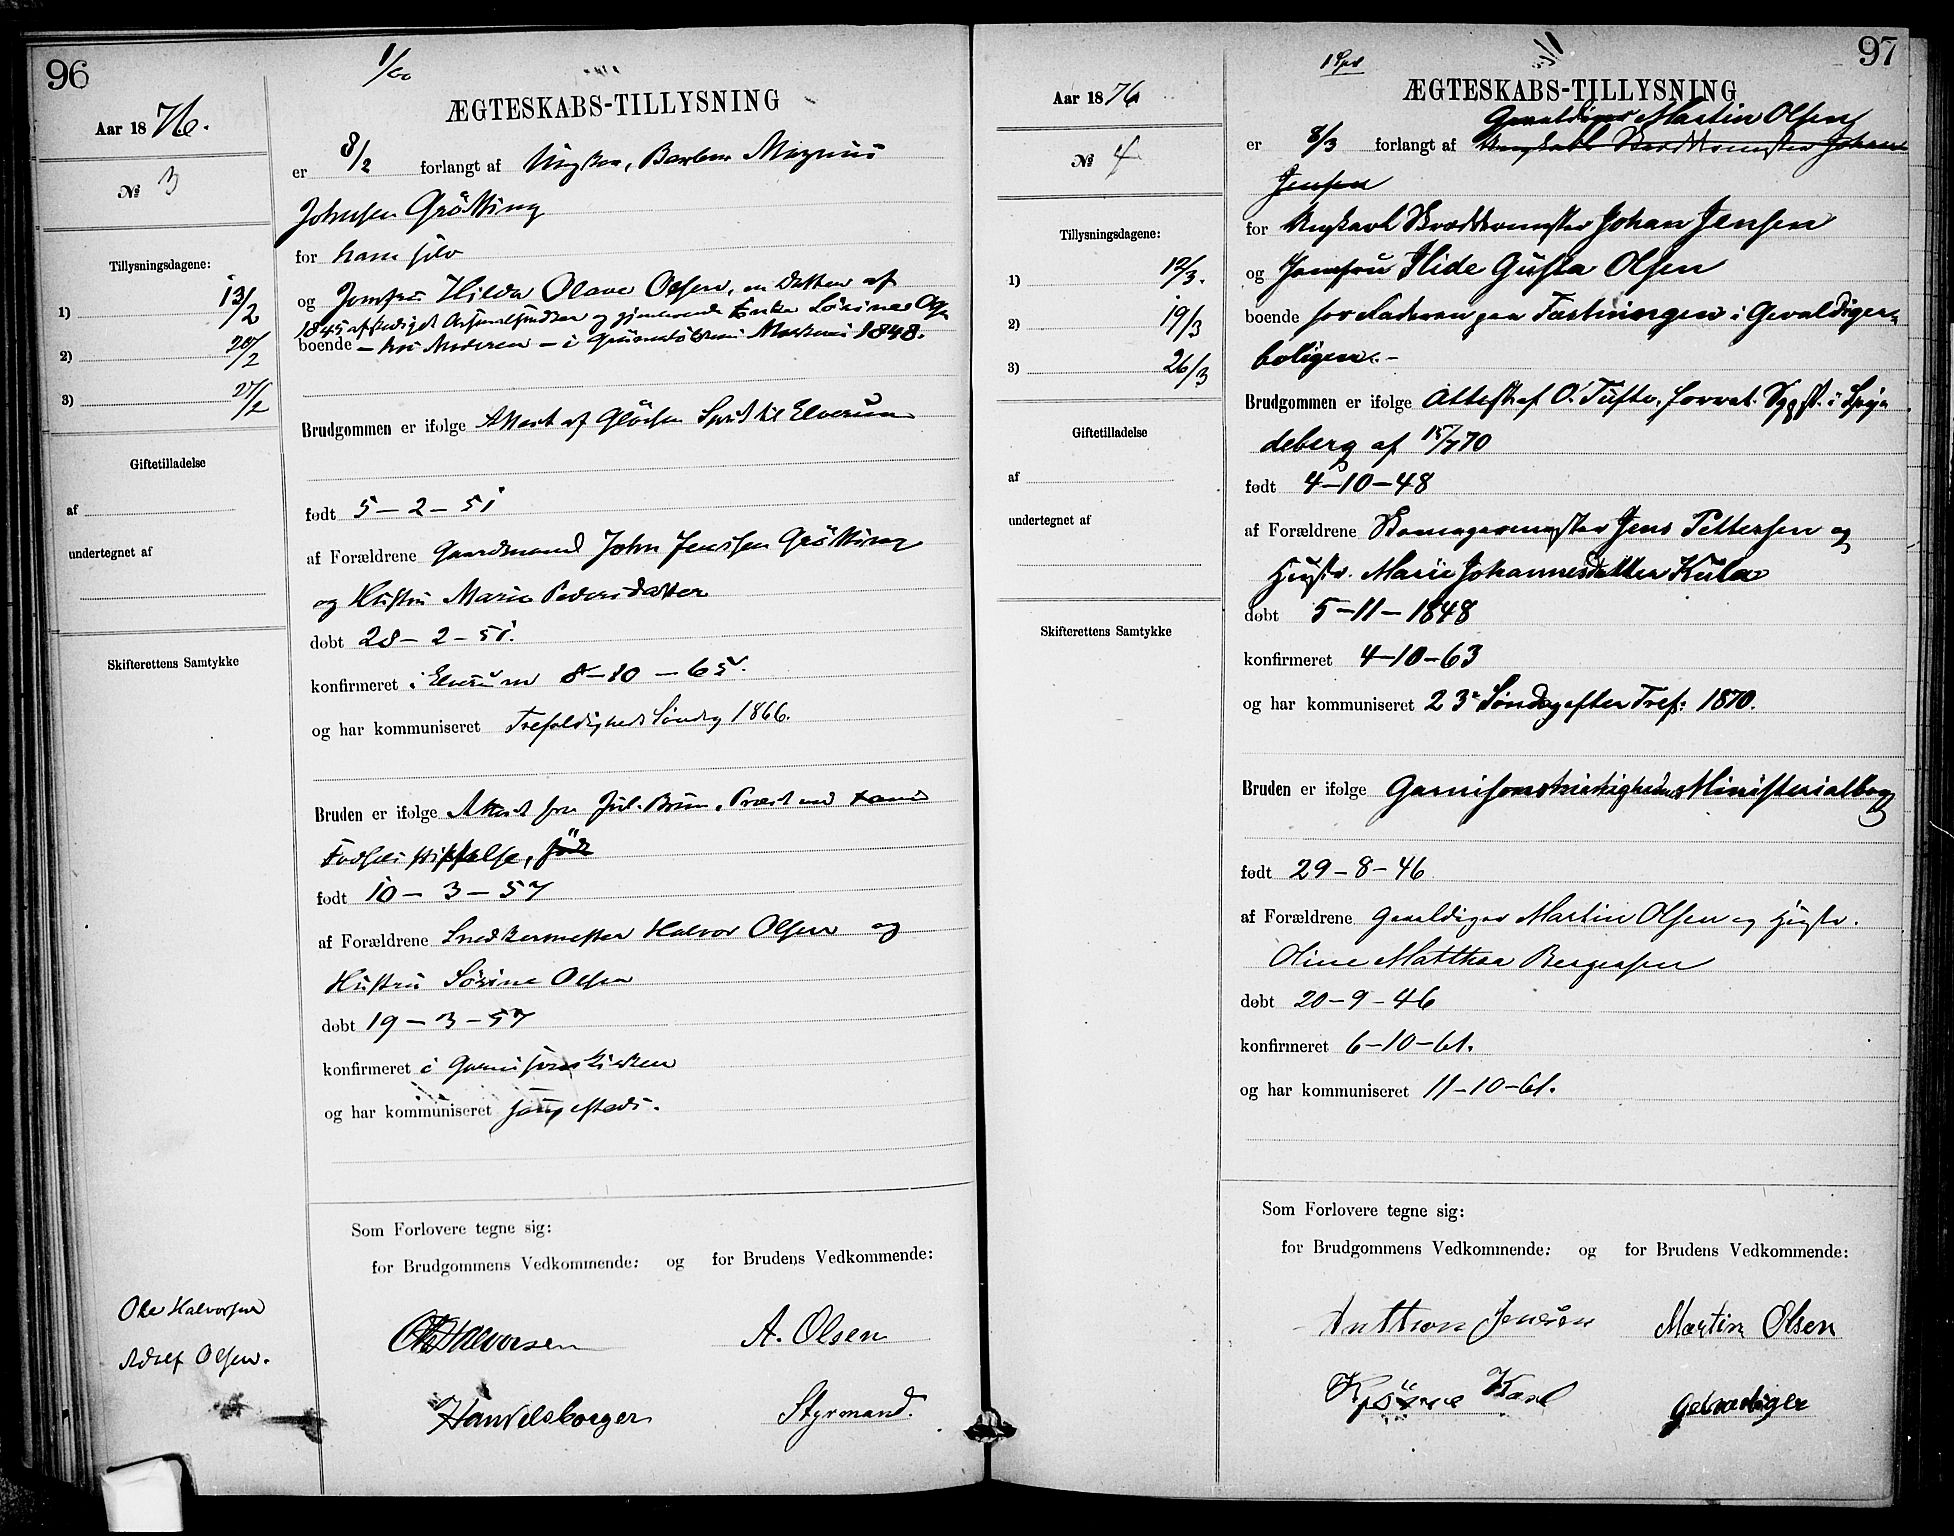 96
1/60
Aar 1876.
ÆGTESKABS-TILLYSNING
№ 3
er 8/2 forlangt af Ungkar, Magnus
Johnsen Grötting
for ham selv
Tillysningsdagene:
1) 13/2
2) 20/2
3) 27/2
og Jomfru Hilda Olave Olsen, en Datter af
1845 og Enke Sörine Olsen
boende — hos Moderen — i 1848.
Brudgommen er ifølge Attest af Spr til Elverum
Giftetilladelse
af
undertegnet af
født 5 – 2 – 51
af Forældrene Gaardmand John Jenssen Grötting
og Hustru Marie Pedersdatter
døbt 28 – 2 – 51.
Skifterettens Samtykke
konfirmeret i Elverum 8 – 10 – 65.
og har kommuniseret Trefoldigheds Søndag 1866.
Bruden er ifølge Attest fra Jul. Bruun, Præst ved
Fødselsstiftelse, född
født 10 – 3 – 57
af Forældrene Snedkermester Halvor Olsen og
Hustru Sörine Olsen
døbt 19 – 3 – 57
konfirmeret i Garnisonskirken
og har kommuniseret sammesteds.
Som Forlovere tegne sig:
for Brudgommens Vedkommende: og for Brudens Vedkommende:
Ole Halvorsen
Adolf Olsen.
O Halvorsen A. Olsen
Handelsborger Styrmand.
97
1 Spd
Aar 1876
ÆGTESKABS-TILLYSNING
Gevaldiger Martin Olsen
№ 4
er 8/3 forlangt af Ungkarl Skræddermester Johan
Jensen
for Ungkarl Skræddermester Johan Jensen
Tillysningsdagene:
1) 12/3.
2) 19/3
3) 26/3
og Jomfru Ilide Gusta Olsen
boende hos Faderen paa Fæstningen i Gevaldiger-
boligen. –
Brudgommen er ifølge Attest af O. Tufte, forrat. Sgpst. i Spy
deberg af 15/7 70
Giftetilladelse
af
undertegnet af
født 4–10–48
af Forældrene Skomagermester Jens Pettersen og
Hustr. Marie Johannesdatter Kula
døbt 5–11–1848
Skifterettens Samtykke
konfirmeret 4–10–63
og har kommuniseret 23de Søndag efter Tref: 1870.
Bruden er ifølge Garnisonsmenighedens Ministerialbog
født 29–8–46
af Forældrene Gevaldiger Martin Olsen og Hustr.
Oline Matthea Bergersen
døbt 20–9–46
konfirmeret 6–10–61.
og har kommuniseret 11–10–61.
Som Forlovere tegne sig:
for Brudgommens Vedkommende: og for Brudens Vedkommende:
Anthon Jensen Martin Olsen
Karl Gevaldiger